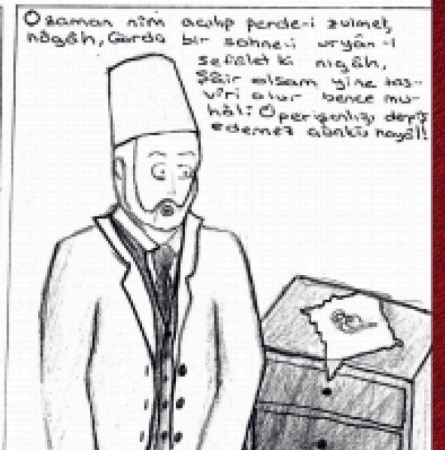 O zaman nîm açılıp perde-i zulmet,
nâgâh, Gördü bir sahne-i uryân-i
sefâlet ki nigâh,
Şâir olsam yine tas-
vîri olur bence mu-
hâl: O perişanlığı derpîş
edemez çünkü hayâl!